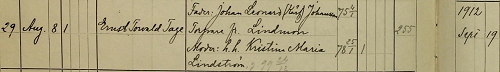 Fader: Johan Leonard (Käg) Johansson 75 4/1 1912
29 Aug. 8 1 Ernst Torvald Tage Torpare fr. Lindmon 255 Sept 19
Moder: h. h. Kristina Maria 78 25/1 1
Lindström